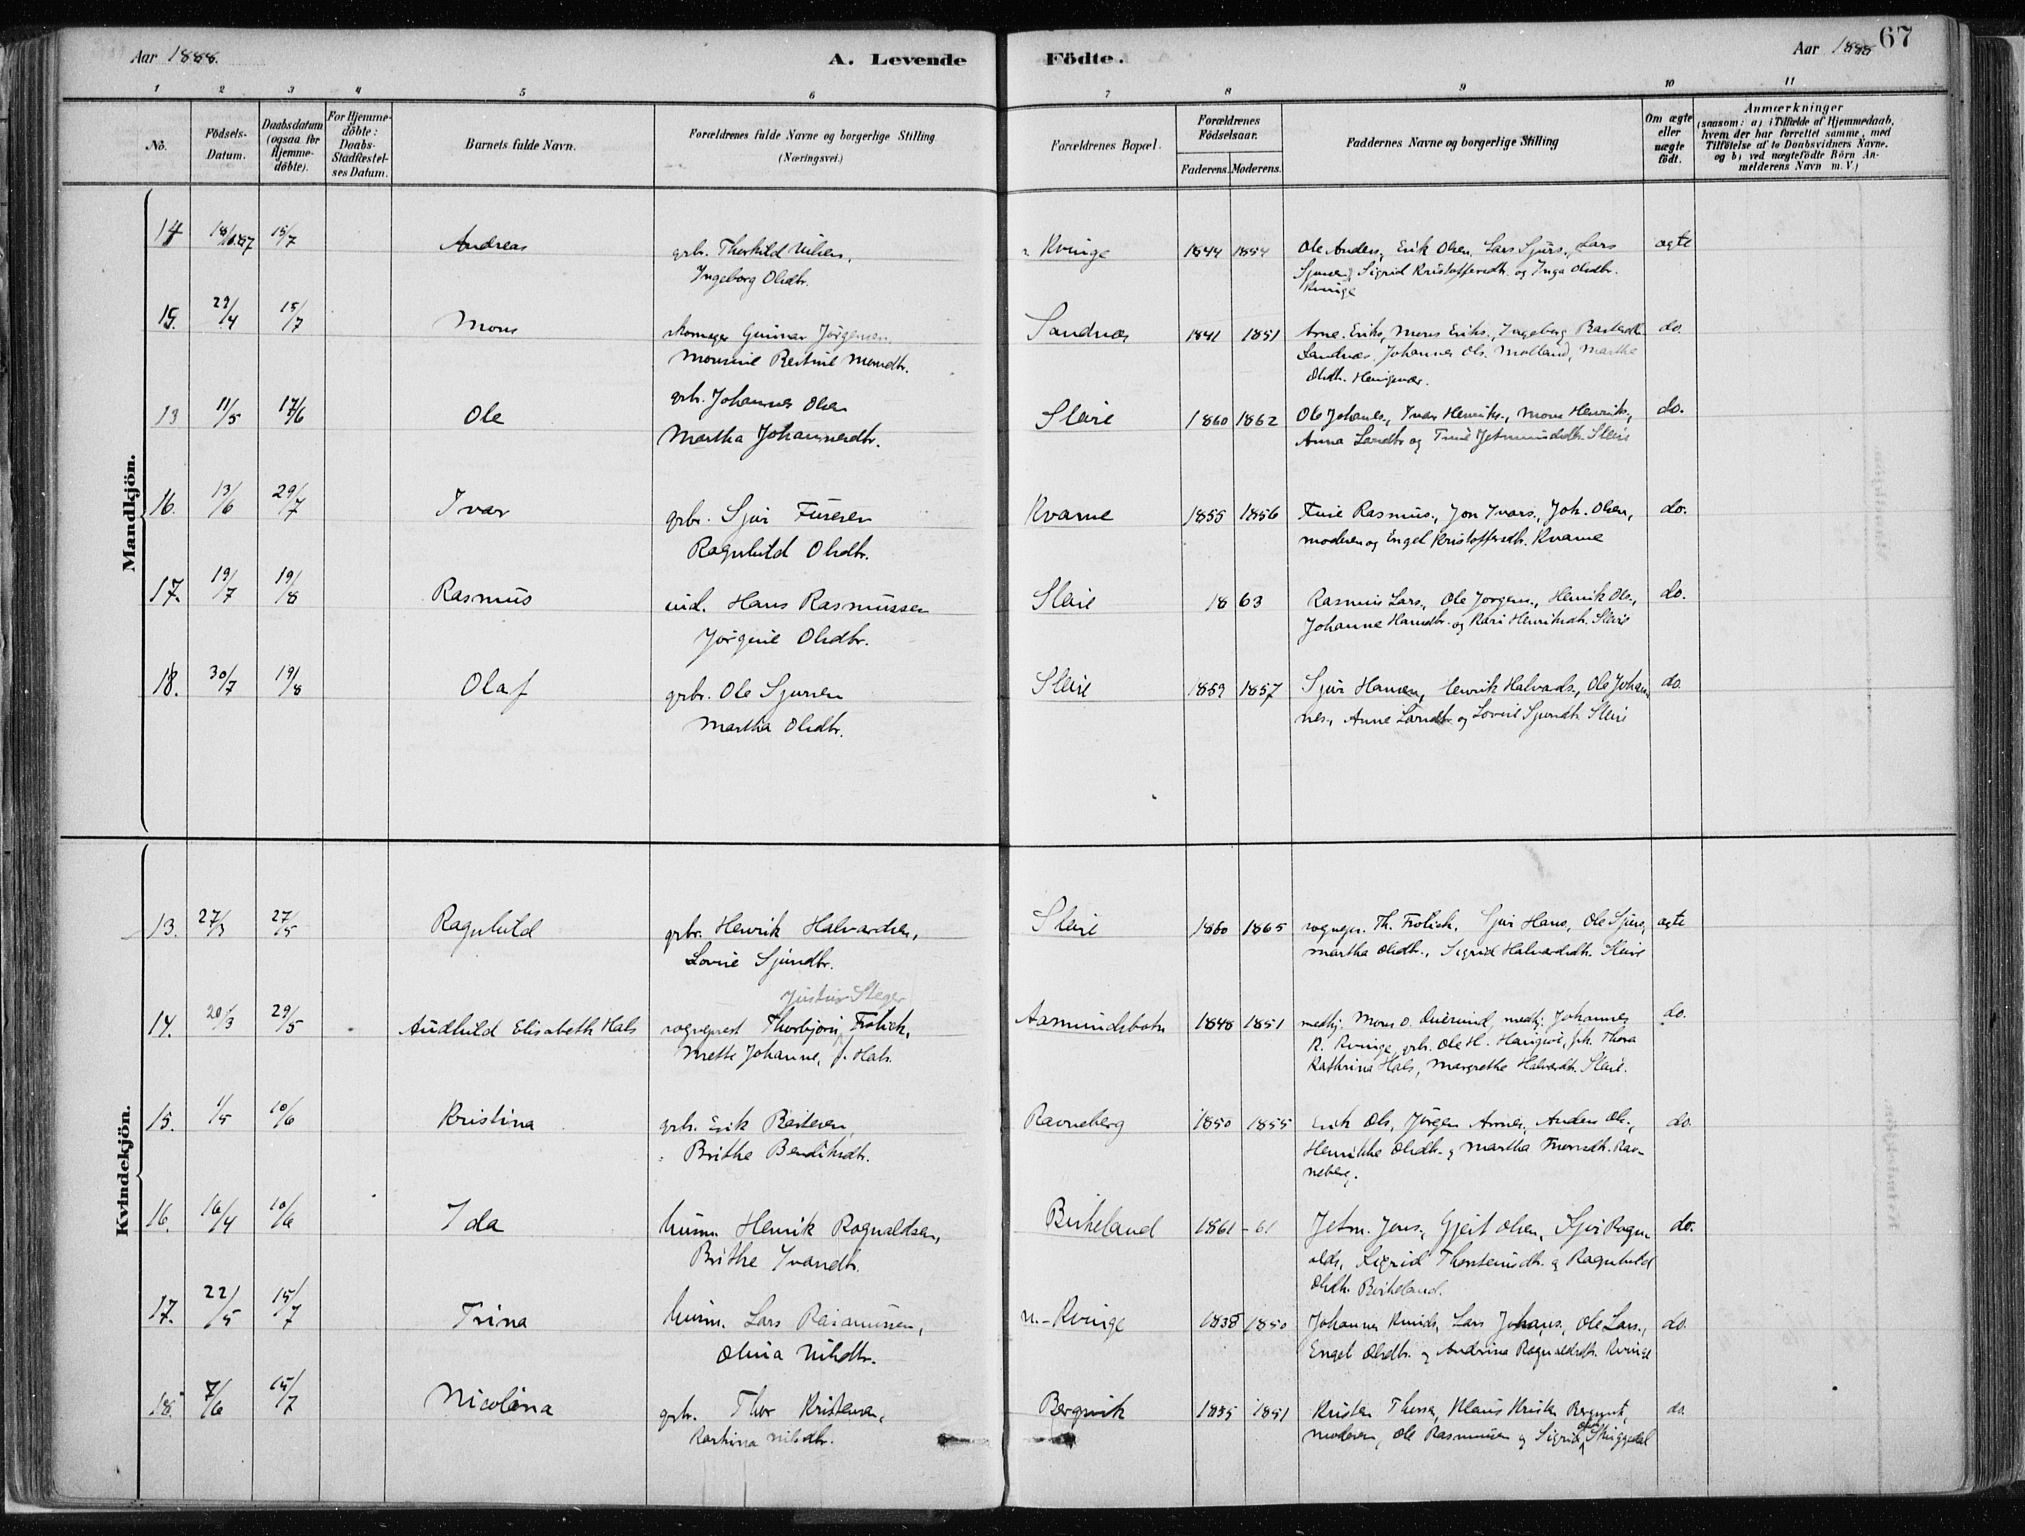 Aar 1888.
A. Levende
Födte.
Aar 1888
67
1 2 3 4 5 6 7 8 9 10 11
No.
Födsels-Datum.
Daabsdatum (ogsaa for Hjemme-döbte).
For Hjemme-döbte: Daabs-Stadfæstel-ses Datum.
Barnets fulde Navn.
Forældrenes fulde Navne og borgerlige Stilling (Næringsvei.)
Forældrenes Bopæl.
Forældrenes Födselsaar.
Faderens. Moderens.
Faddernes Navne og borgerlige Stilling
Om ægte eller uægte födt.
Anmærkninger
(saasom: a) i Tilfælde af Hjemmedaab, hvem der har forrettet samme, med Tilföielse af to Daabsvidners Navne. og b) ved uægtefödte Börn An-melderens Navn m. V.)
Mandkjön.
14 15/7 Andreas grb. Thorkild Nilsen, Kvinge 1844 1854 Ole Anders, Erik Olsen, Lars Sjurs., Lars ægte
Ingeborg Olsdtr. Sjursen, Sigrid Kristoffersdtr. og Inga Olsdtr.
Kvinge
15. 29/4 15/7 Mons skomager Gunnar Jørgensen Sandnæs 1841 1851 Arne Eriks, Mons Eriks, Ingeborg do.
Monsine Bertine Monsdtr. Sandnæs, Johannes Ols. Molland, Marthe
Olsdtr.
13 11/5 17/6 Ole grb. Johannes Olsen Sleire 1860 1862 Ole Johans., Ivar Henriks., Mons Henriks., do.
Martha Johannesdtr. Anna Larsdtr og Sleire
16. 13/6 29/7 Ivar grbr. Sjur Furesen Kvarne 1855 1856 Rasmus., Jon Ivars., Joh. Olsen, do.
Ragnhild Olsdtr. moderen og Engel Kristoffersdtr. Kvarne
17. 19/7 19/8 Rasmus ind. Hans Rasmussen Sleire 1863 Rasmus Lars., Ole Jørgens., Henrik Ols., do.
Jørgine Olsdtr. Johanne Hansdtr. og Kari Henriksdtr. Sleire
18. 30/7 19/8 Olaf grbr. Ole Sjursen Sleire 1859 1857 Sjur Hansen, Henrik Halvards., Ole Johan do.
Martha Olsdtr. nes., Anne Larsdtr. og Lovise Sjursdtr. Sleire
Kvindekjön.
13. 27/3 27/5 Ragnhild grbr. Henrik Halvardsen, Sleire 1860 1865 sogepr. Th. Frølich, Sjur Hans, Ole Sjurs, ægte
Lovise Sjursdtr. Martha Olsdtr., Sigrid Halvardsdtr. Sleire
Justus Steger
14. 20/3 29/5 Audhild Elisabeth Hals sognepræst Thorbjørn Frølich, Aasmundsbotn 1848 1851 medhj. Mons O. medhj. Johannes do.
Mette Johanne, f. Hals. R. Kvinge, grb. Ole H. Haugsvæ, frk. Thora
Kathrina Hals, Margrethe Halvardtr. Sleire.
15. 1/5 10/6 Kristina grb. Erik Bertesen, Ravneberg 1850 1855 Erik Ols, Jørgen Arnes, Anders Ols., do.
Brithe Bendiksdtr. Henrikke Olsdtr. og Martha Rav-
neberg.
16. 16/4 10/6 Ida husm. Henrik Ragnvaldsen, Birkeland 1861 - 61 Jetm. Jens, Gjert Olsen, Sjur Ragn do.
Brithe Ivarsdtr. valds, Sigrid Thorsteinsdtr. og Ragnhild
Olsdtr. Birkeland.
17. 22/5 15/7 Trina husm. Lars Rasmussen, n.-Kvinge 1838 1850 Johannes Knuds, Lars Johans., Ole Lars., do.
Olina Nilsdtr. Engel Olsdtr. og Andrina Ragnvaldsdtr. Kvinge
18. 7/6 15/7 Nicolina grb. Thor Kristensen, Bergsvik 1835 1851 Kristen Thorsen, Klaus Kristen Bergsvik, do.
Karina Nilsdtr. moderen, Ole Rasmussen og Sigrid Skuggedal